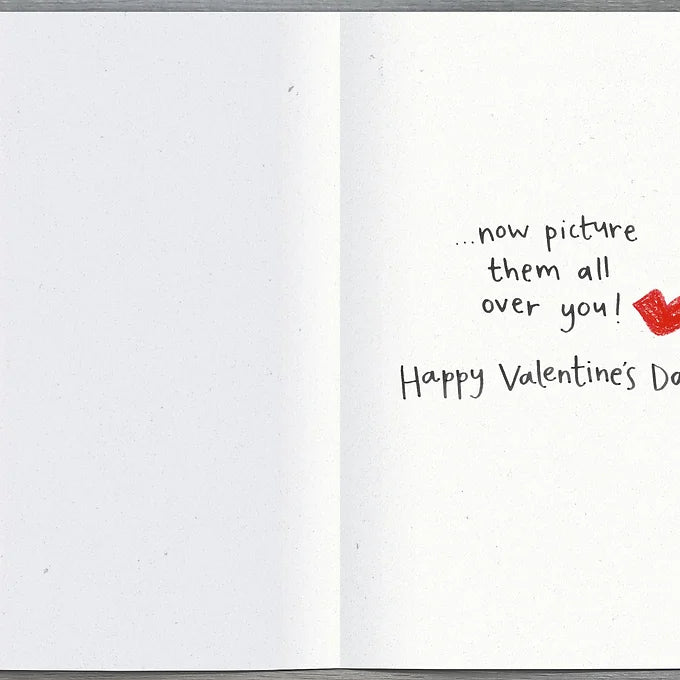 ...now picture
them all
over you!
Happy Valentine's Da